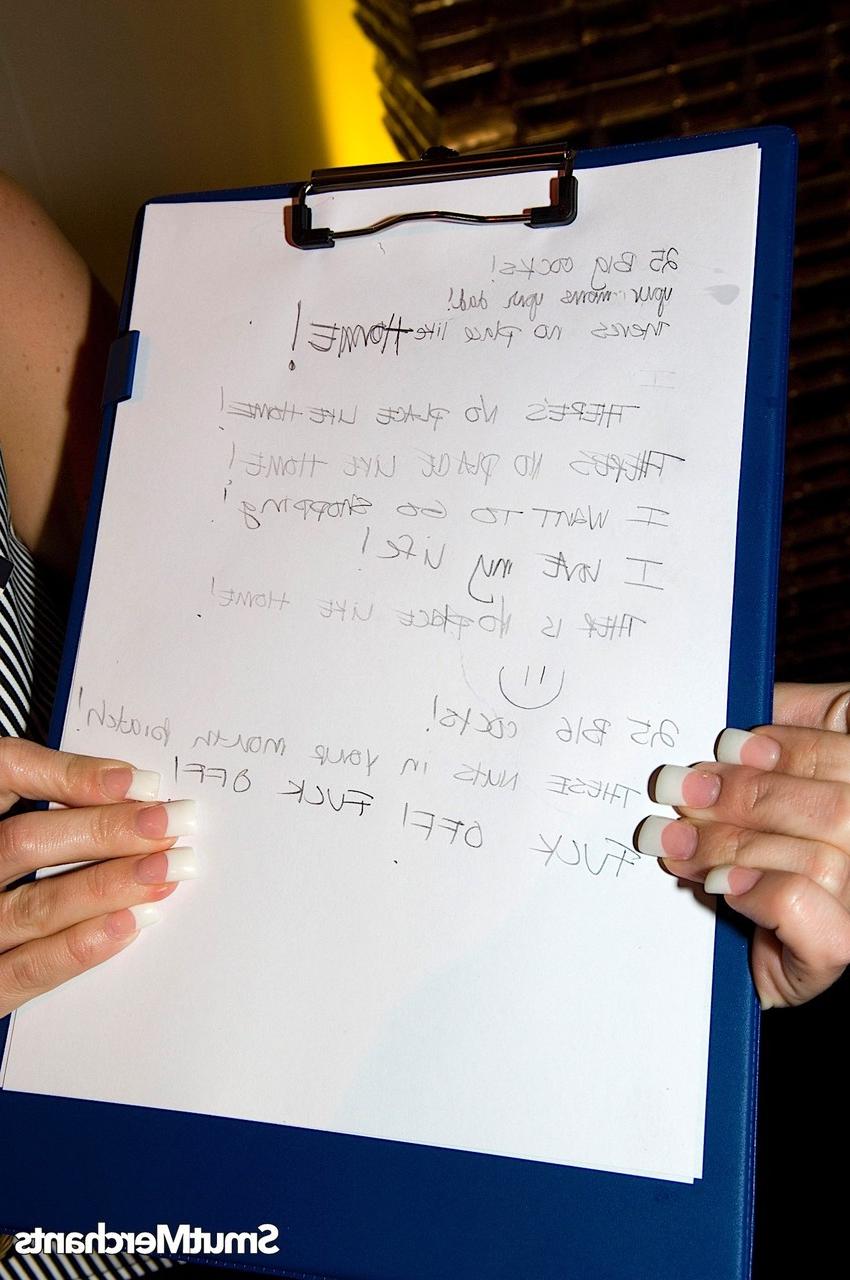 25 Big cocks!
your moms your dad!
theres no place like HOME!
I
THERE'S NO PLACE LIKE HOME!
THERE'S NO PLACE LIKE HOME!
I WANT TO GO SHOPPING!
I LOVE my LIFE!
THER IS NO PLACE LIKE HOME!
25 BIG COCKS!
THESE NUTS IN YOUR MOUTH biatch!
FUCK OFF! FUCK OFF!
SmutMerchants